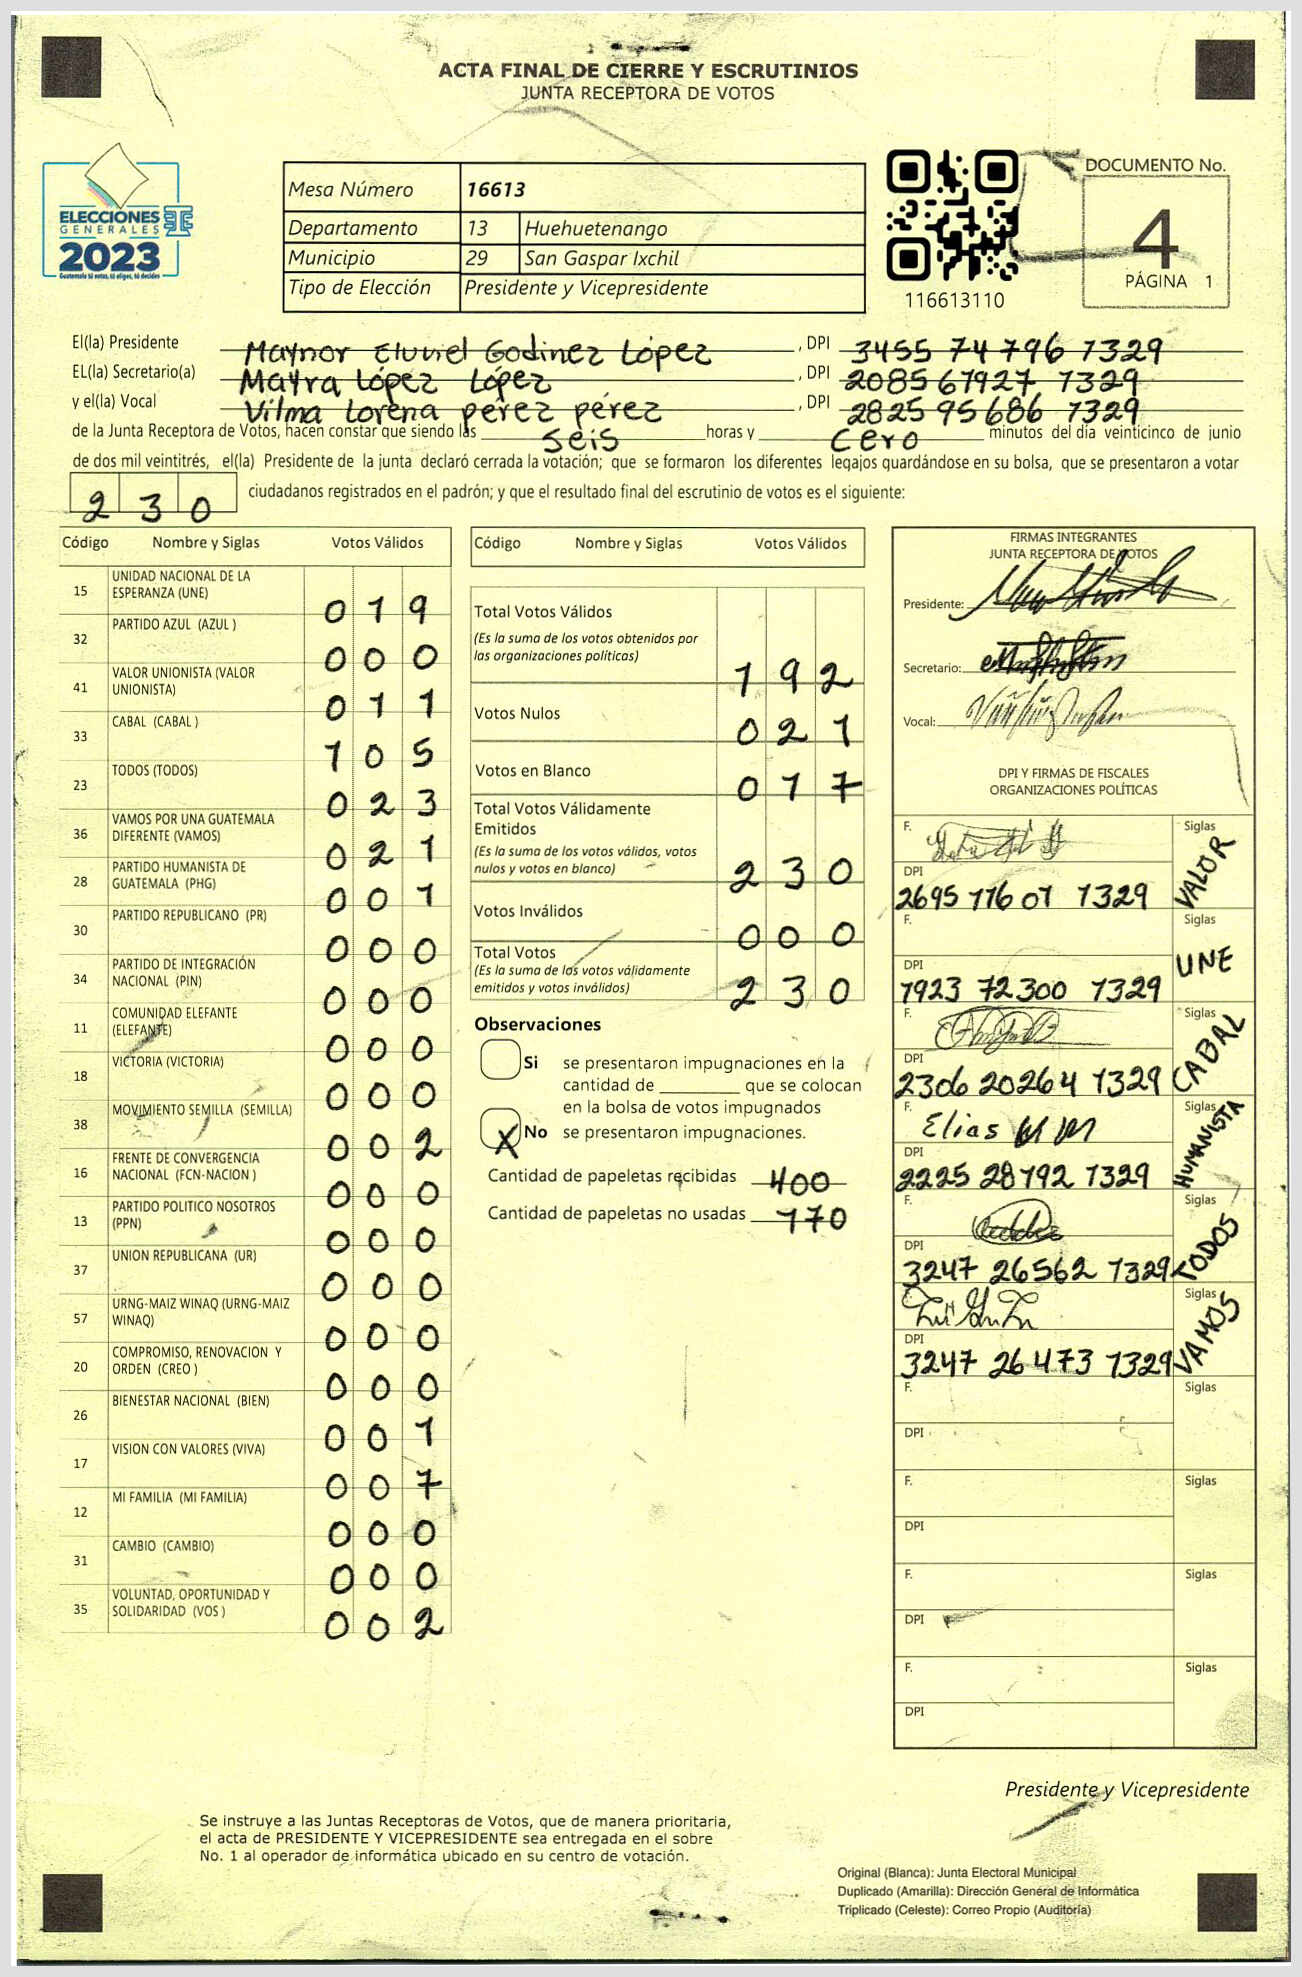 ACTA FINAL DE CIERRE Y ESCRUTINIOS
JUNTA RECEPTORA DE VOTOS
ELECCIONES
GENERALES
2023
Guatemala tú votas, tú eliges, tú decides
Mesa Número 16613
Departamento 13 Huehuetenango
Municipio 29 San Gaspar Ixchil
Tipo de Elección Presidente y Vicepresidente
116613110
DOCUMENTO No.
4
PÁGINA 1
El(la) Presidente Maynor Godinez López, DPI 3455 74796 1329
EL(la) Secretario(a) Mayra López López, DPI 2085 67927 1329
y el(la) Vocal Vilma Lorena pérez pérez, DPI 2825 95686 1329
de la Junta Receptora de Votos, hacen constar que siendo las seis horas y cero minutos del día veinticinco de junio
de dos mil veintitrés, el(la) Presidente de la junta declaró cerrada la votación; que se formaron los diferentes legajos guardándose en su bolsa, que se presentaron a votar
230 ciudadanos registrados en el padrón; y que el resultado final del escrutinio de votos es el siguiente:
Código Nombre y Siglas Votos Válidos
15 UNIDAD NACIONAL DE LA ESPERANZA (UNE) 019
32 PARTIDO AZUL (AZUL ) 000
41 VALOR UNIONISTA (VALOR UNIONISTA) 011
33 CABAL (CABAL ) 105
23 TODOS (TODOS) 023
36 VAMOS POR UNA GUATEMALA DIFERENTE (VAMOS) 021
28 PARTIDO HUMANISTA DE GUATEMALA (PHG) 001
30 PARTIDO REPUBLICANO (PR) 000
34 PARTIDO DE INTEGRACIÓN NACIONAL (PIN) 000
11 COMUNIDAD ELEFANTE (ELEFANTE) 000
18 VICTORIA (VICTORIA) 000
38 MOVIMIENTO SEMILLA (SEMILLA) 002
16 FRENTE DE CONVERGENCIA NACIONAL (FCN-NACION ) 000
13 PARTIDO POLITICO NOSOTROS (PPN) 000
37 UNION REPUBLICANA (UR) 000
57 URNG-MAIZ WINAQ (URNG-MAIZ WINAQ) 000
20 COMPROMISO, RENOVACION Y ORDEN (CREO ) 000
26 BIENESTAR NACIONAL (BIEN) 001
17 VISION CON VALORES (VIVA) 007
12 MI FAMILIA (MI FAMILIA) 000
31 CAMBIO (CAMBIO) 000
35 VOLUNTAD, OPORTUNIDAD Y SOLIDARIDAD (VOS ) 002
Código Nombre y Siglas Votos Válidos
Total Votos Válidos
(Es la suma de los votos obtenidos por
las organizaciones políticas) 192
Votos Nulos 021
Votos en Blanco 017
Total Votos Válidamente
Emitidos
(Es la suma de los votos válidos, votos
nulos y votos en blanco) 230
Votos Inválidos 000
Total Votos
(Es la suma de los votos válidamente
emitidos y votos inválidos) 230
Observaciones
Si se presentaron impugnaciones en la
cantidad de ________ que se colocan
en la bolsa de votos impugnados
X No se presentaron impugnaciones.
Cantidad de papeletas recibidas 400
Cantidad de papeletas no usadas 170
FIRMAS INTEGRANTES
JUNTA RECEPTORA DE VOTOS
Presidente:
Secretario:
Vocal:
DPI Y FIRMAS DE FISCALES
ORGANIZACIONES POLÍTICAS
F. Siglas VALOR
DPI
2695 11607 1329
F. Siglas UNE
DPI
1923 72300 1329
F. Siglas CABAL
DPI
2306 20264 1329
F. Elias Siglas HUMANISTA
DPI
2225 28792 1329
F. Siglas TODOS
DPI
3247 26562 1329
F. Siglas VAMOS
DPI
3247 26473 1329
F. Siglas
DPI
F. Siglas
DPI
F. Siglas
DPI
F. Siglas
DPI
Presidente y Vicepresidente
Se instruye a las Juntas Receptoras de Votos, que de manera prioritaria,
el acta de PRESIDENTE Y VICEPRESIDENTE sea entregada en el sobre
No. 1 al operador de informática ubicado en su centro de votación.
Original (Blanca): Junta Electoral Municipal
Duplicado (Amarilla): Dirección General de Informática
Triplicado (Celeste): Correo Propio (Auditoría)